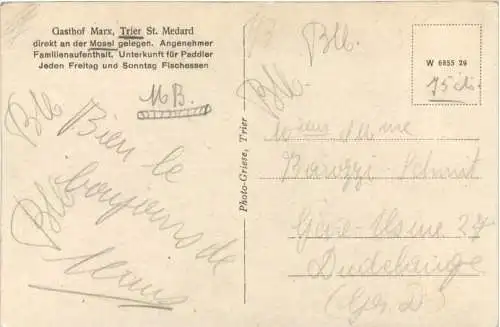 Gasthof Marx, Trier St. Medard
direkt an der Mosel gelegen. Angenehmer
Familienaufenthalt. Unterkunft für Paddler
Jeden Freitag und Sonntag Fischessen
Blb
MB.
Blb
Blb
Bien le
bonjour de
Photo-Griese, Trier
Blb.
Blb.
W 6855 29
75 cts.
Mme
Gare-Usine 27
Dudelange
(Gr. D.)